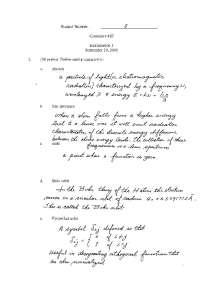 Student Number 8
Chemistry 485
Examination 1
September 19, 2003
1. (30 points) Define and/or
a. photon
a particle of light (or electromagnetic
radiation) characterized by a frequency ν,
wavelength λ & energy E = hν =
b. line spectrum
When a atom falls from a higher energy
that to a lower one it will emit radiation
characteristic of the discrete energy difference
between the atom energy levels. The collection of these
frequencies is a line spectrum
c. node
a point where a function is zero
d. Bohr orbit
In the Bohr theory of the H atom the electron
moves in a circular orbit of radius
This is called the Bohr orbit
e. Kronecker delta
A symbol δij defined so that
δij = { 0 if i≠j
1 if i=j
Useful in designating orthogonal functions that
are also normalized